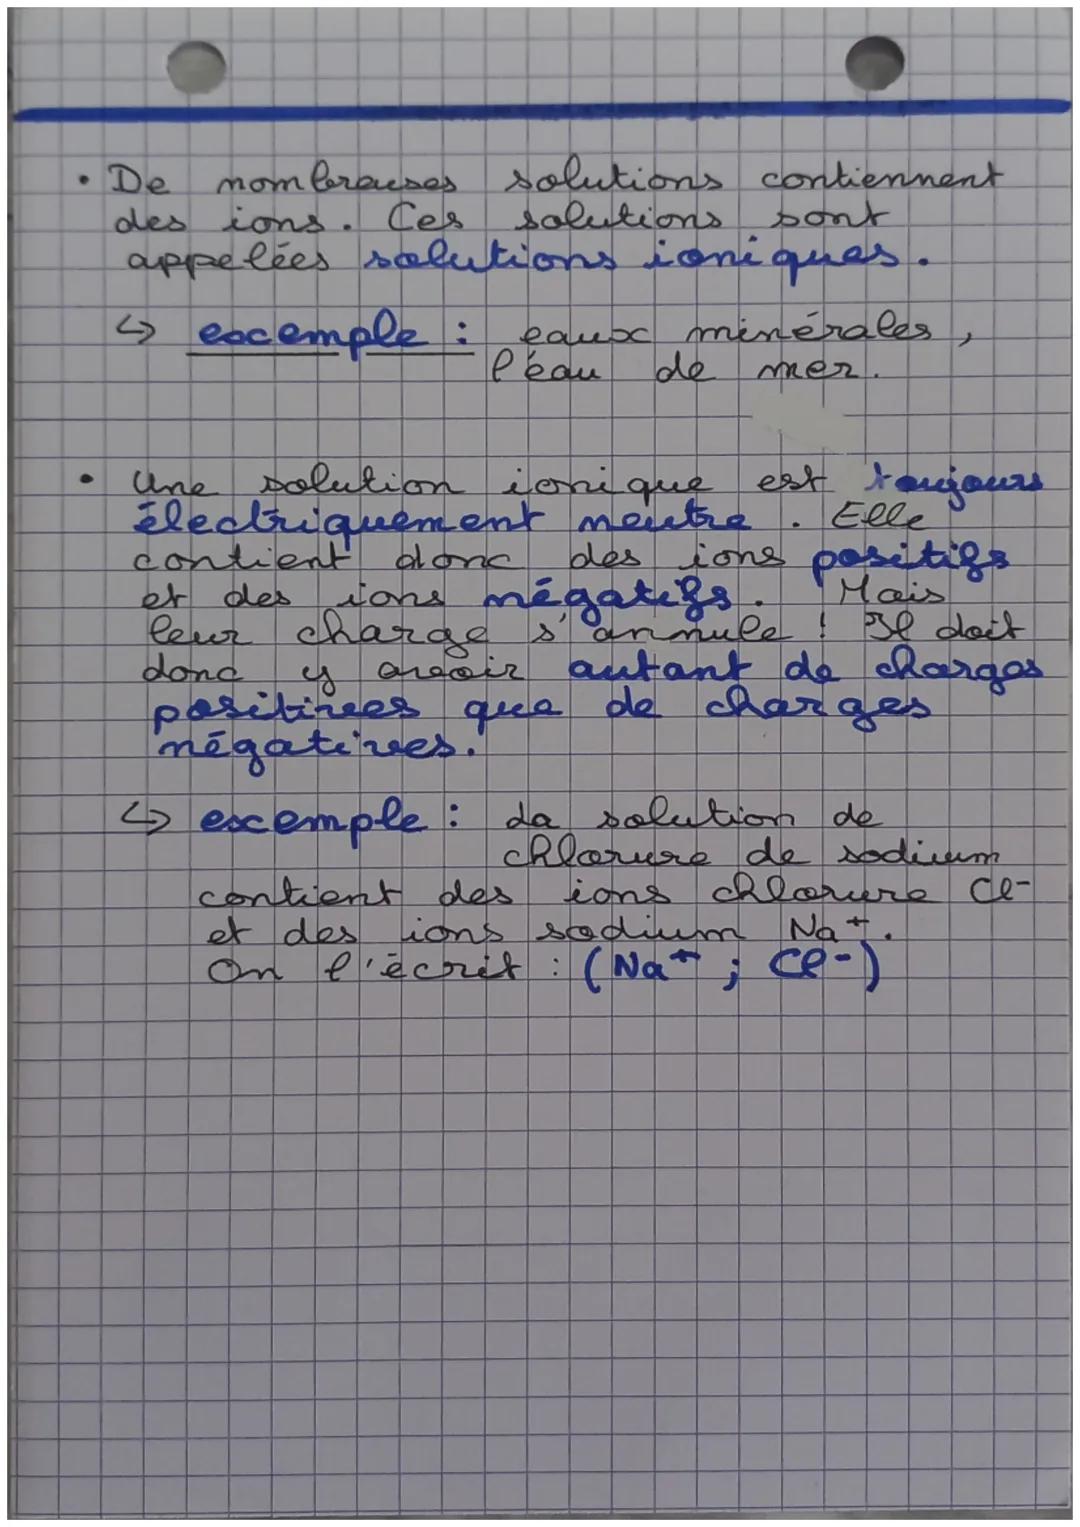 • De nombreuses solutions contiennent
des ions. Ces solutions sont
appelées solutions ioniques.
↳ exemple : eaux minérales,
l'eau de mer.
• Une solution ionique est toujours
électriquement neutre. Elle
contient donc des ions positifs
et des ions négatifs. Mais
leur charge s'annule ! Il doit
donc y avoir autant de charges
positives que de charges
négatives.
↳ exemple : La solution de
chlorure de sodium
contient des ions chlorure Cl-
et des ions sodium Na+.
On l'écrit : (Na+ ; Cl-)